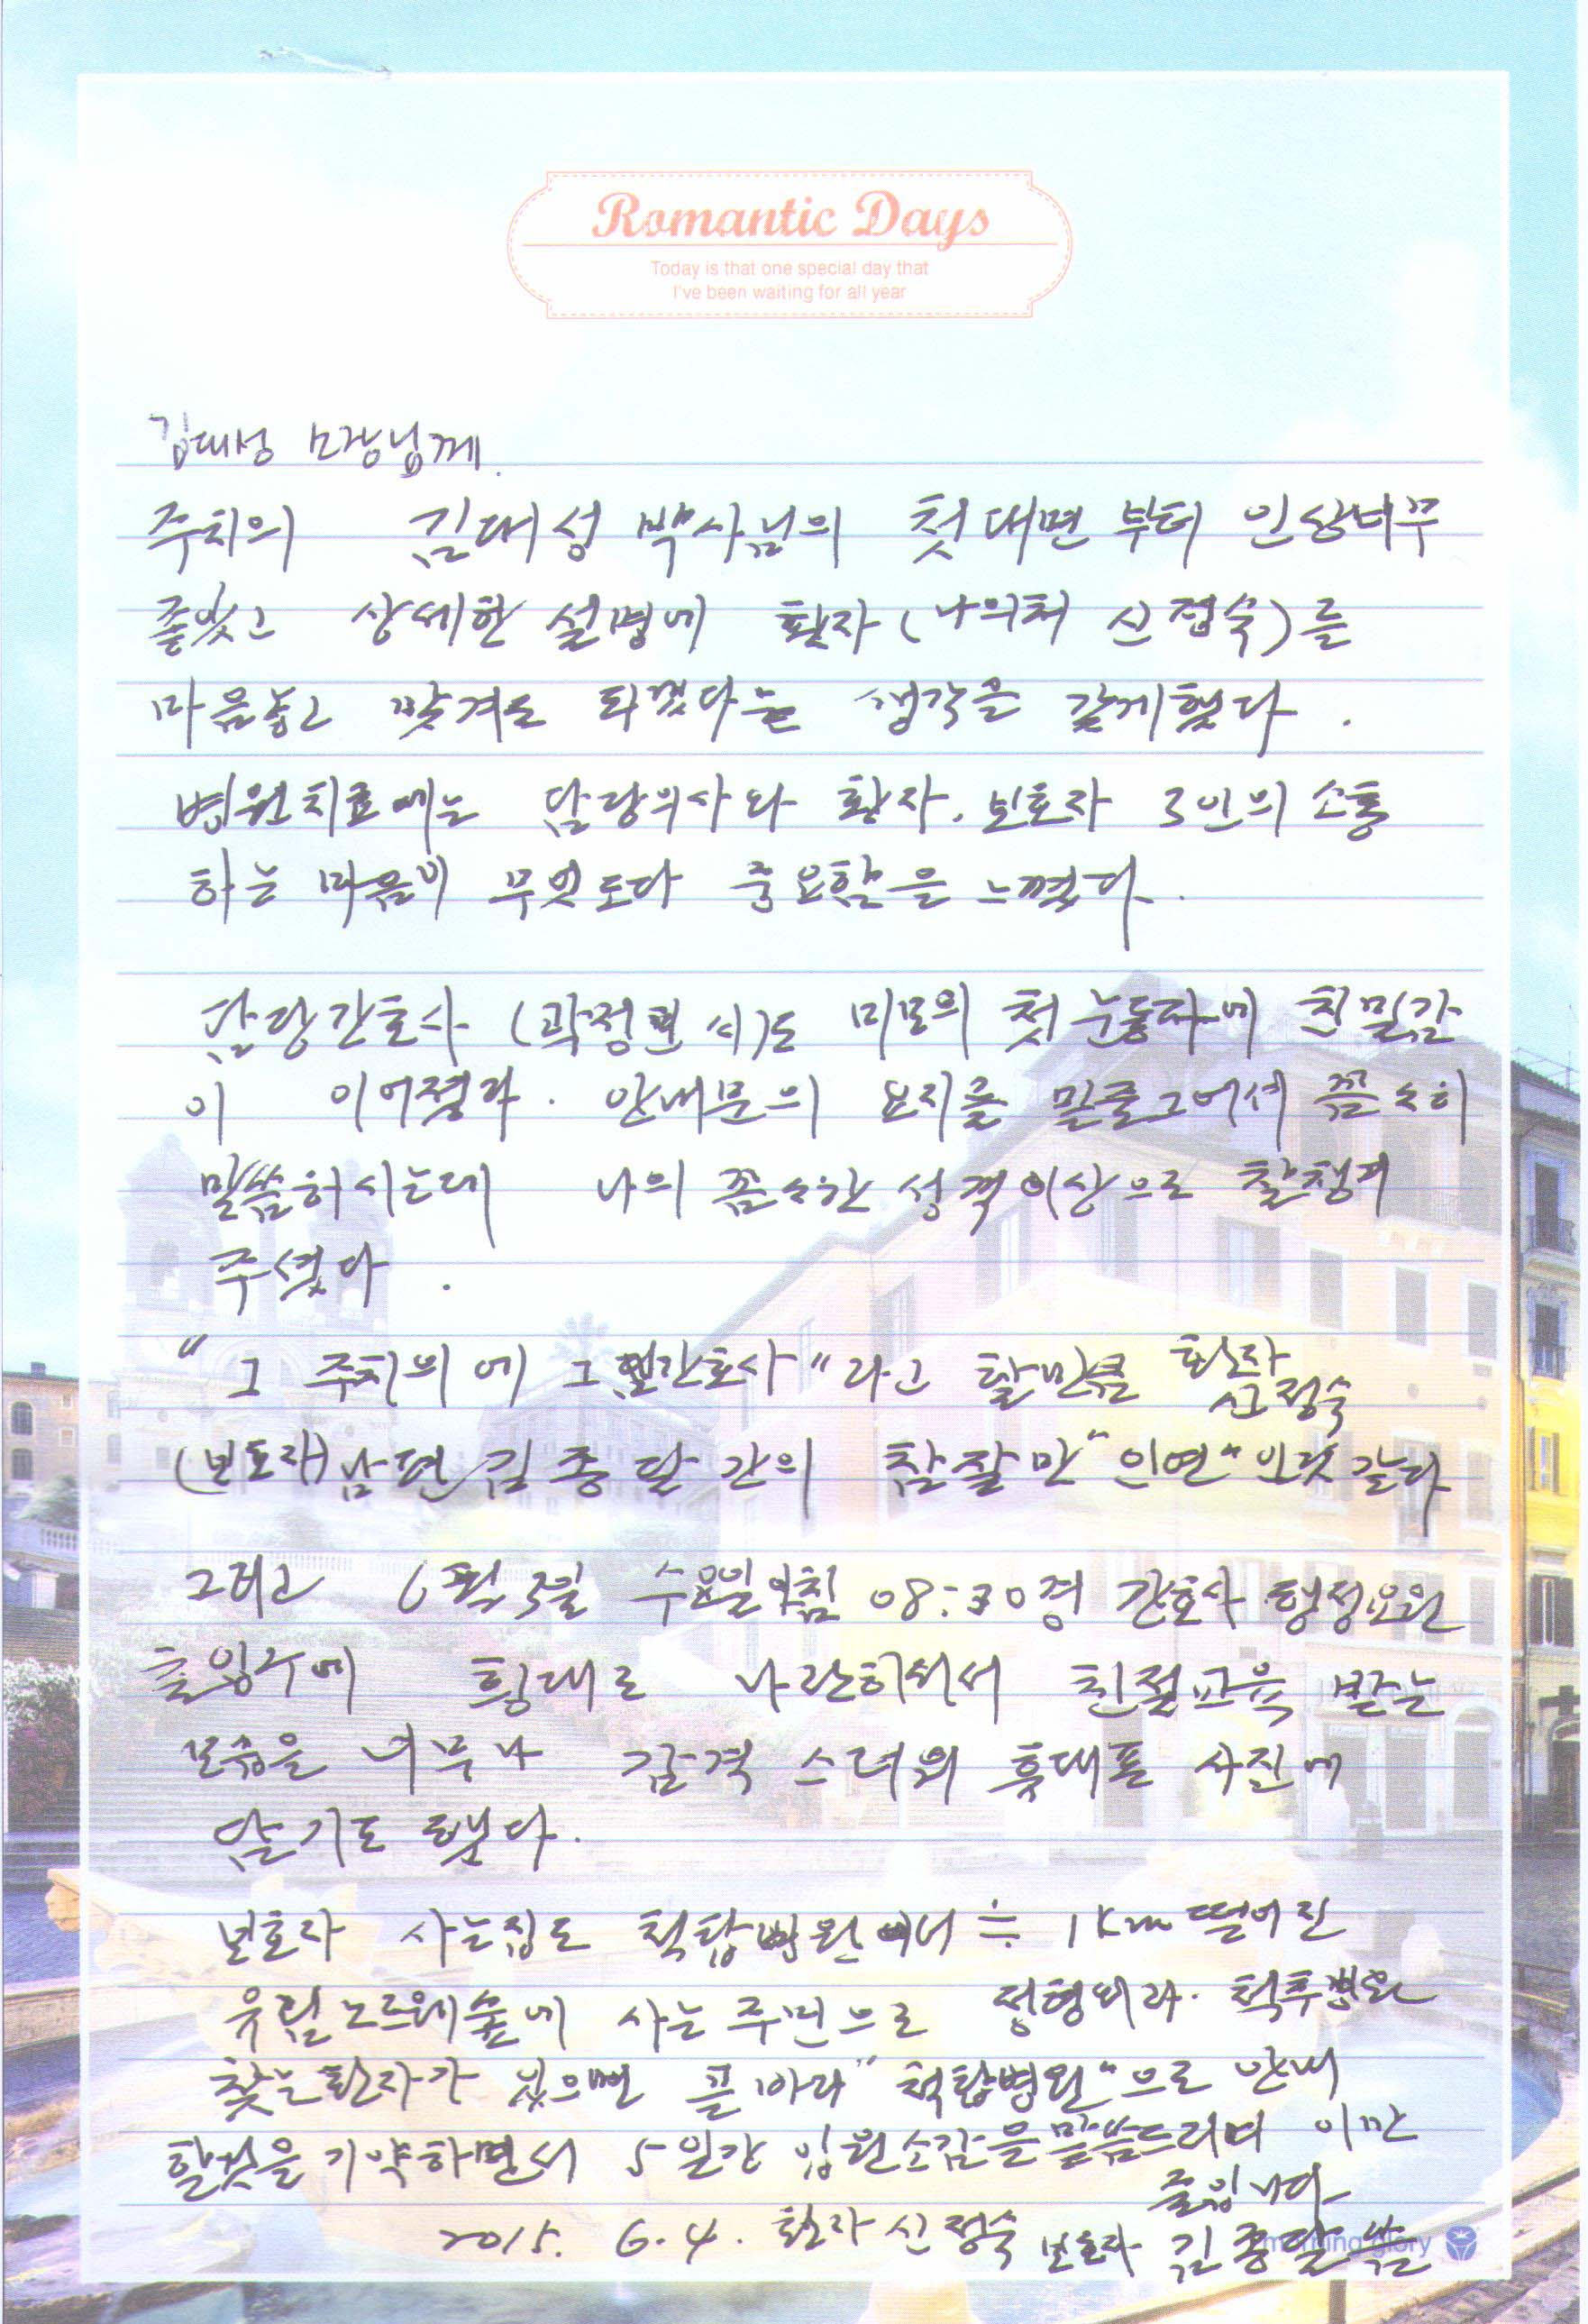 Romantic Days
Today is that one special day that
I've been waiting for all year
김대성 모장님께.
주치의 김대성 박사님의 첫대면 부터 인상너무
좋았고 상세한 설명에 환자(나의처 신정숙)를
마음놓고 맞겨도 되겠다는 생각을 갖게했다.
병원치료에는 담당의사와 환자. 보호자 3인의 소통
하는 마음이 무엇보다 중요함을 느꼈다.
담당간호사 (곽정현 씨)도 미모의 첫 눈동자에 친밀감
이 이어졌다. 안내문의 요지를 밑줄그어서 꼼소히
말씀하시는데 나의 꼼소한 성격이상으로 잘챙겨
주셨다.
"그 주치의 에 그 간호사"라고 할만큼 환자
신정숙
(보호자)남편 김종달 간의 참잘만 "인연"인것 같다
그리고 6월 3일 수요일아침 08:30경 간호사 행정요원
출입구에 횡대로 나란히서서 친절교육 받는
모습을 너무나 감격 스러워 휴대폰 사진에
담기도 했다.
보호자 사는집도 척탑병원에서 ≒ 1km 떨어진
유림노르웨이숲에 사는 주민으로 정형외과. 척추병원
찾는환자가 있으면 꼭 "척탑병원"으로 안내
할것을 기약하면서 5일간 입원소감을 말씀드리며 이만
줄입니다
2015. 6. 4. 환자 신정숙 보호자 김종달 씀
morning glory